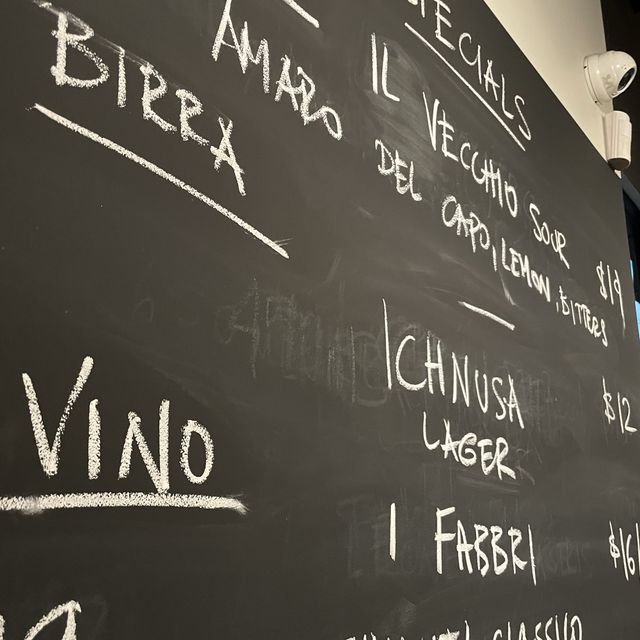 SPECIALS
IL VECCHIO SOUR $19
AMARO DEL CAPO, LEMON, BITTERS
BIRRA
ICHNUSA $12
LAGER
VINO
I FABBRI $16
CLASSICO